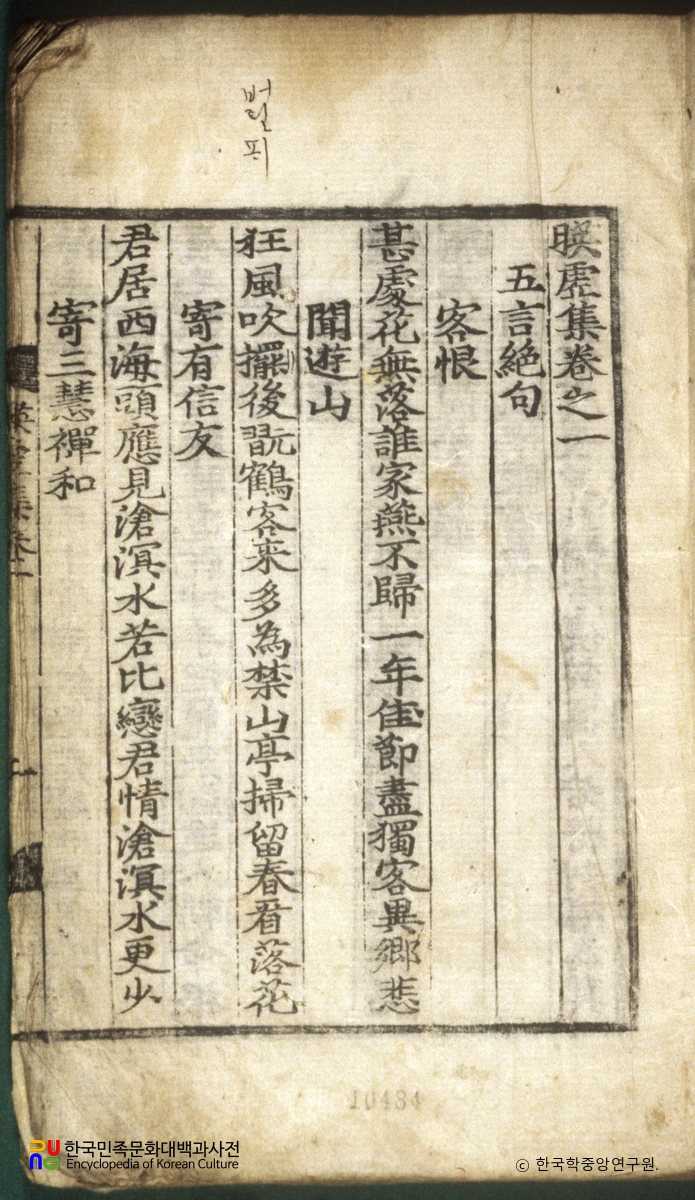 벌
피
暎虛集卷之一
五言絶句
客恨
甚處花無落誰家燕不歸一年佳節盡獨客異鄕悲
聞遊山
狂風吹擺後翫鶴客來多為禁山亭掃留春看落花
寄有信友
君居西海頭應見滄溟水若比戀君情滄溟水更少
寄三慧禪和
10484
한국민족문화대백과사전
Encyclopedia of Korean Culture
© 한국학중앙연구원.